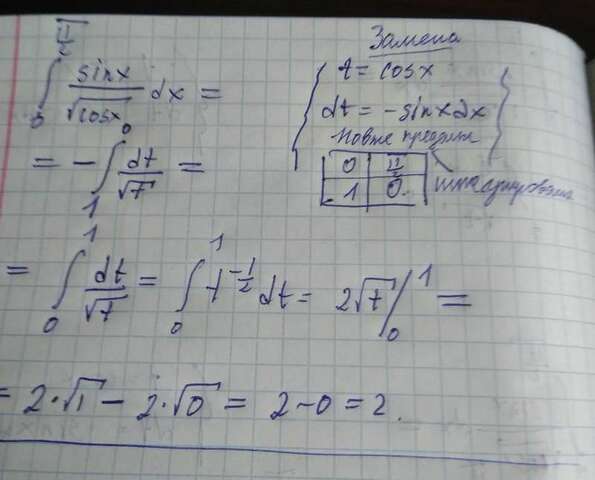 ∫₀^{π/2} sinx/√cosx dx =
Замена
t = cosx
dt = -sinxdx
Новые пределы интегрирования
0 | π/2
1 | 0
= -∫₁⁰ dt/√t =
= ∫₀¹ dt/√t = ∫₀¹ t^{-1/2} dt = 2√t /₀¹ =
= 2·√1 - 2·√0 = 2-0 = 2.